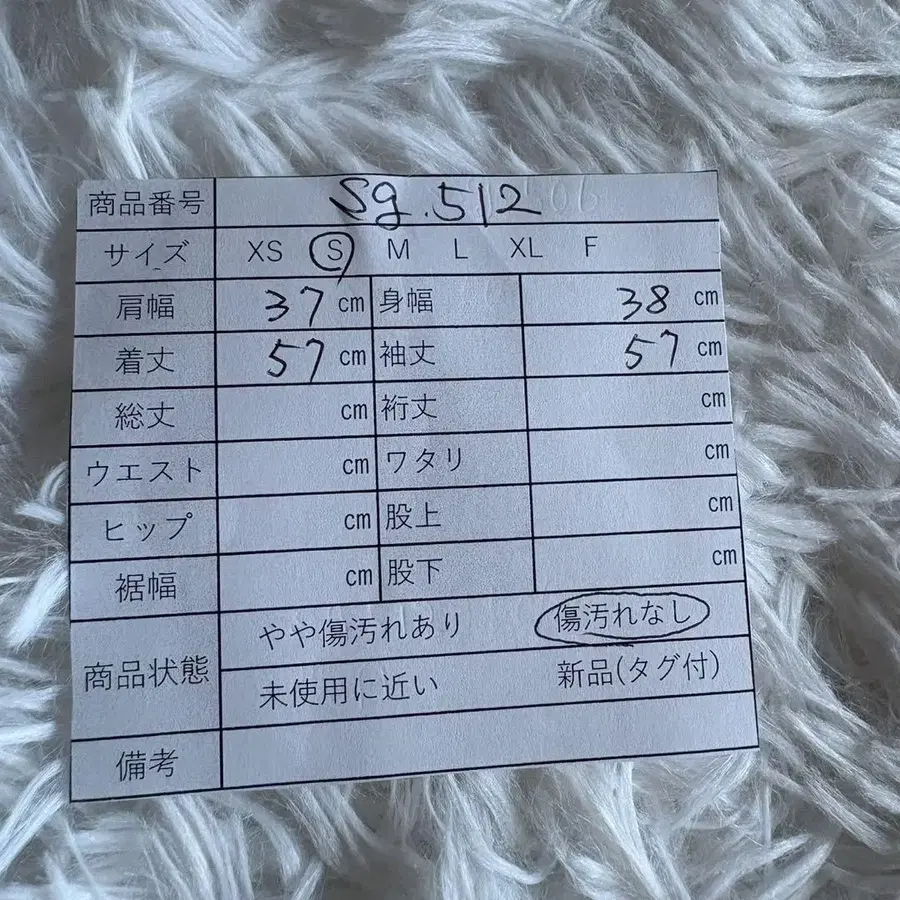 商品番号 Sg.512
サイズ XS S M L XL F
肩幅 37 cm 身幅 38 cm
着丈 57 cm 袖丈 57 cm
総丈 cm 裄丈 cm
ウエスト cm ワタリ cm
ヒップ cm 股上 cm
裾幅 cm 股下 cm
商品状態 やや傷汚れあり 傷汚れなし
未使用に近い 新品(タグ付)
備考